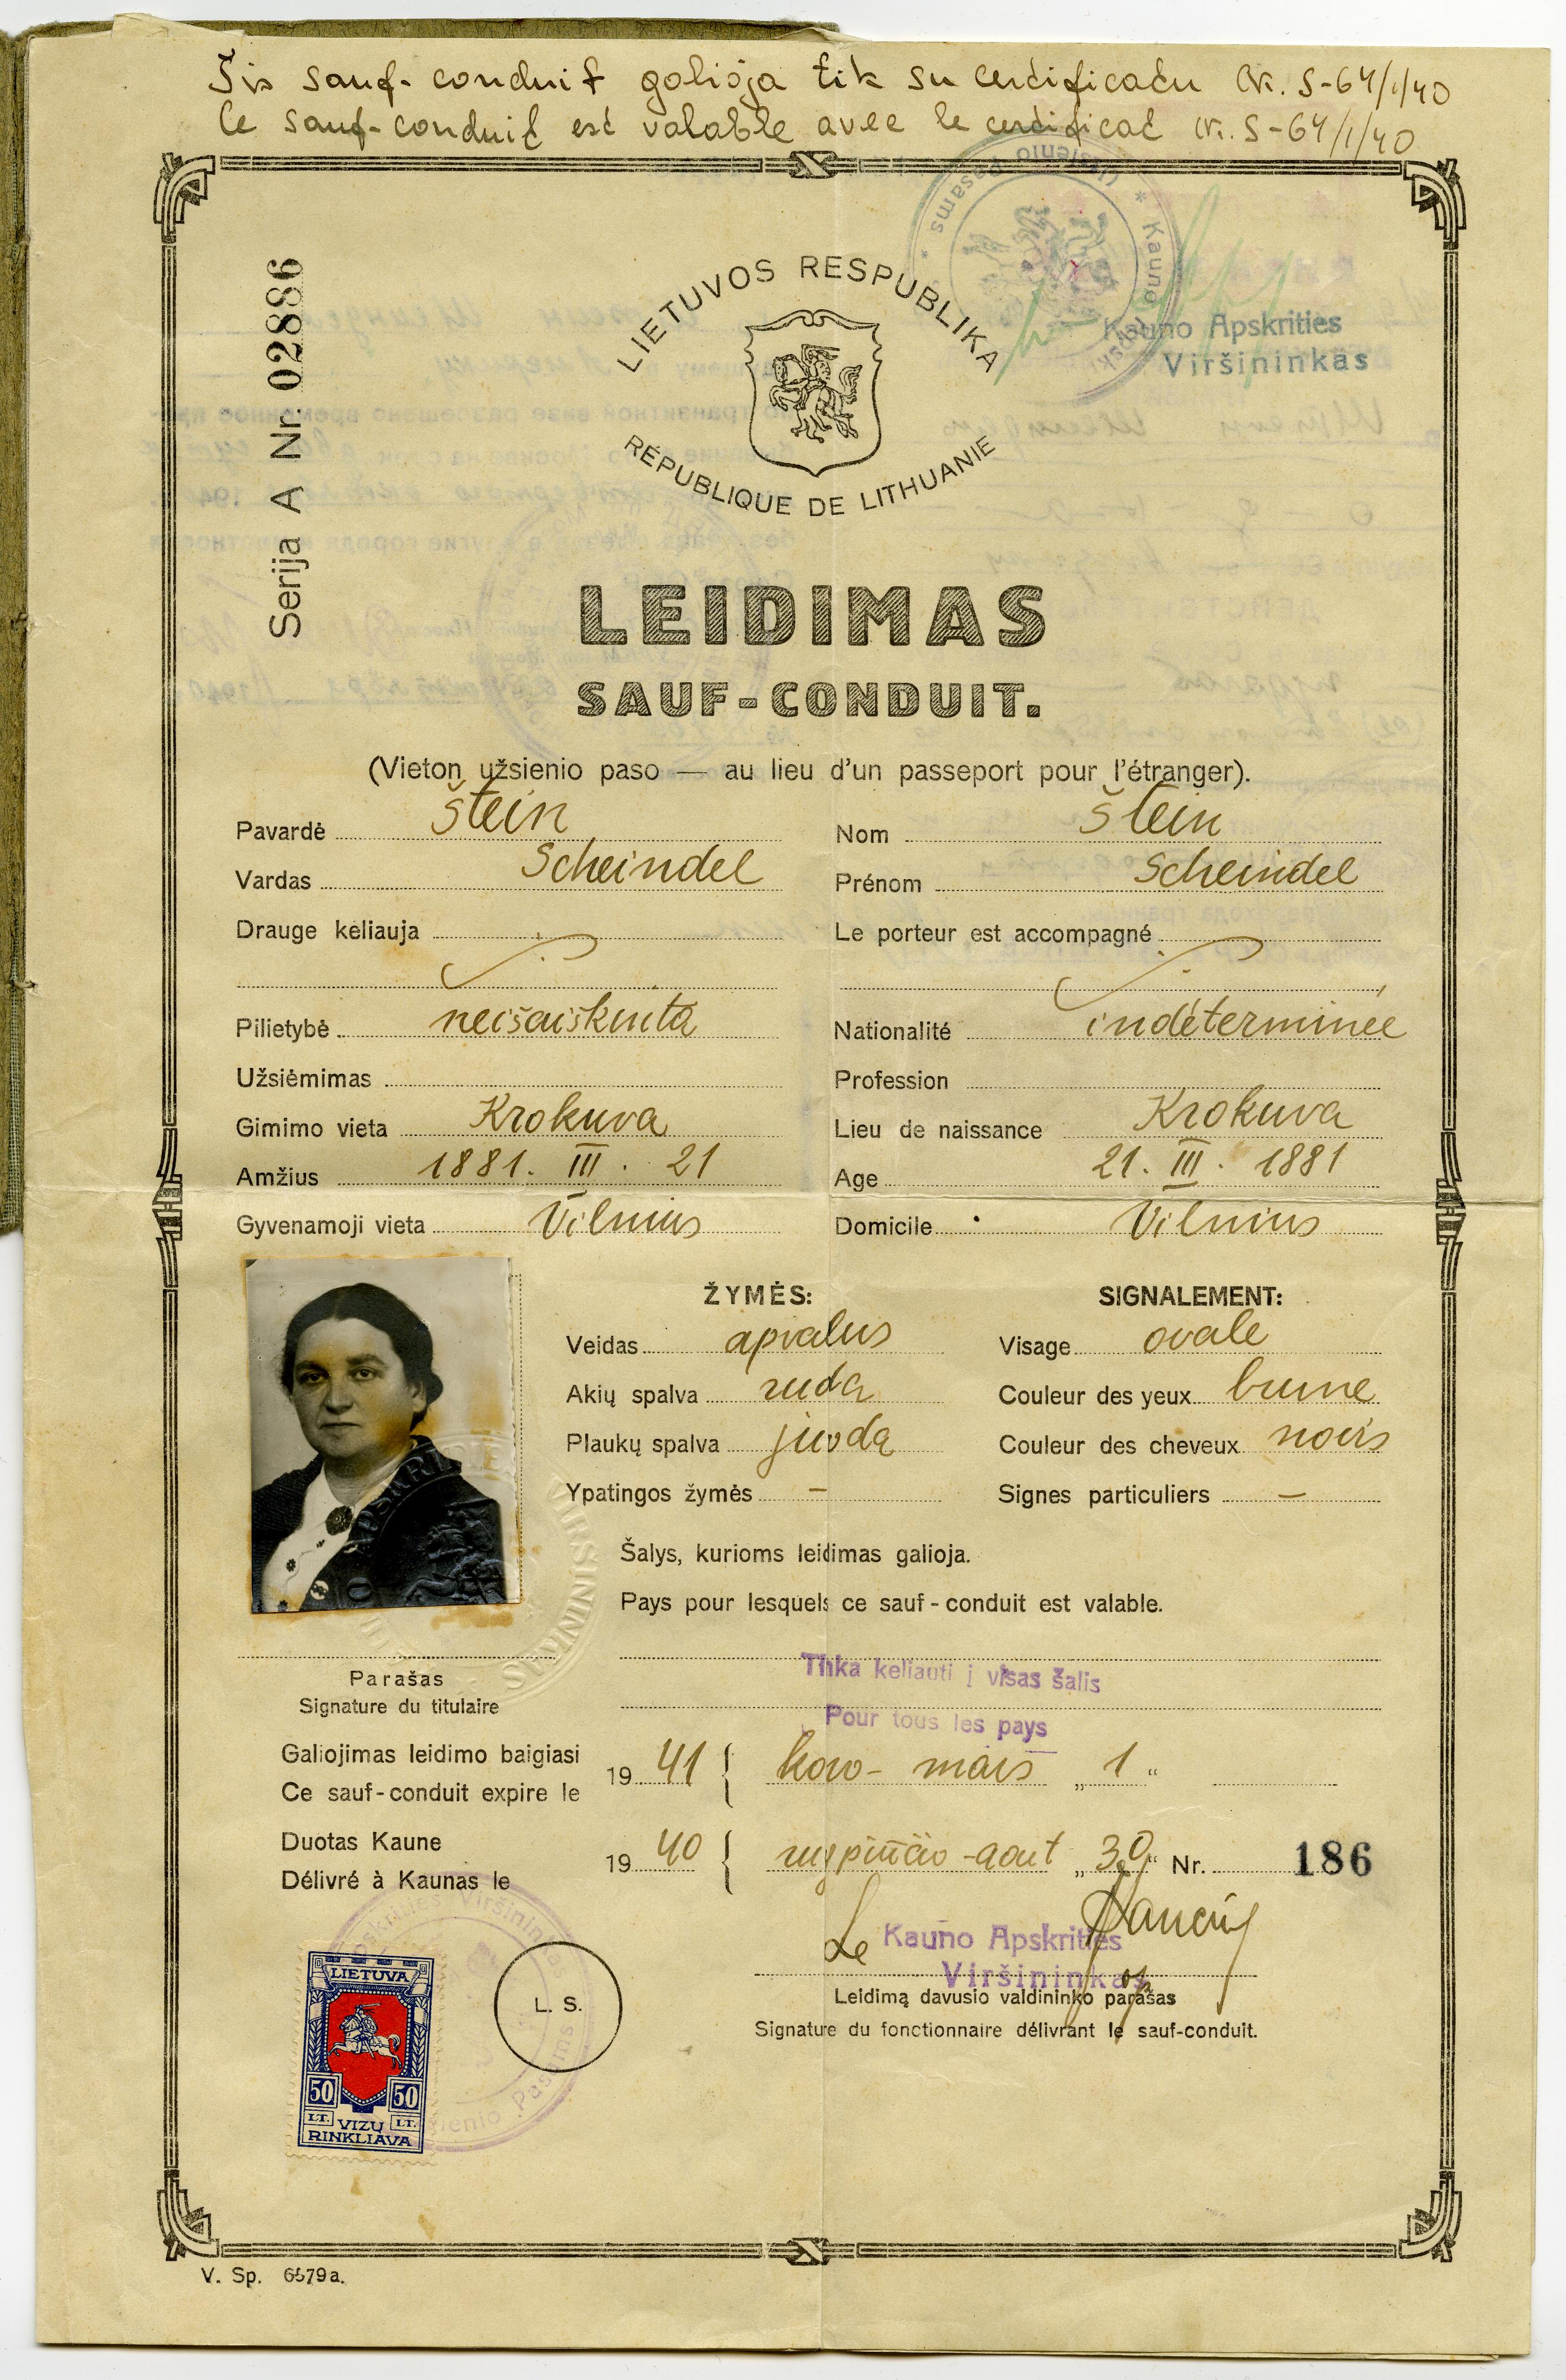 Šis sauf-conduit galioja tik su certificatu Nr. S-64/1/40
Ce sauf-conduit est valable avec le certificat Nr. S-64/1/40
Serija A Nr. 02886
LIETUVOS RESPUBLIKA
RÉPUBLIQUE DE LITHUANIE
* Kauno Apskr užsienio Pasams *
Kauno Apskrities
Viršininkas
LEIDIMAS
SAUF-CONDUIT.
(Vieton užsienio paso — au lieu d'un passeport pour l'étranger).
Pavardė Štein Nom Štein
Vardas Scheindel Prénom Scheindel
Drauge keliauja Le porteur est accompagné
Pilietybė neišaiškinta Nationalité indéterminée
Užsiėmimas Profession
Gimimo vieta Krokuva Lieu de naissance Krokuva
Amžius 1881. III. 21 Age 21. III. 1881
Gyvenamoji vieta Vilnius Domicile Vilnius
ŽYMĖS: SIGNALEMENT:
Veidas apvalus Visage ovale
Akių spalva ruda Couleur des yeux brune
Plaukų spalva juoda Couleur des cheveux noirs
Ypatingos žymės – Signes particuliers –
Šalys, kurioms leidimas galioja.
Pays pour lesquels ce sauf-conduit est valable.
Tinka keliauti į visas šalis
Pour tous les pays
VIRŠININKAS
Parašas
Signature du titulaire
Galiojimas leidimo baigiasi
Ce sauf-conduit expire le
1941 { kovo - mars „1“
Duotas Kaune
Délivré à Kaunas le
1940 { rugpiučio - aout „30“ Nr. 186
Le Kauno Apskrities
Viršininkas
Leidimą davusio valdininko parašas
Signature du fonctionnaire délivrant le sauf-conduit.
L. S.
LIETUVA
50 50
LT. VIZŲ LT.
RINKLIAVA
V. Sp. 6579a.